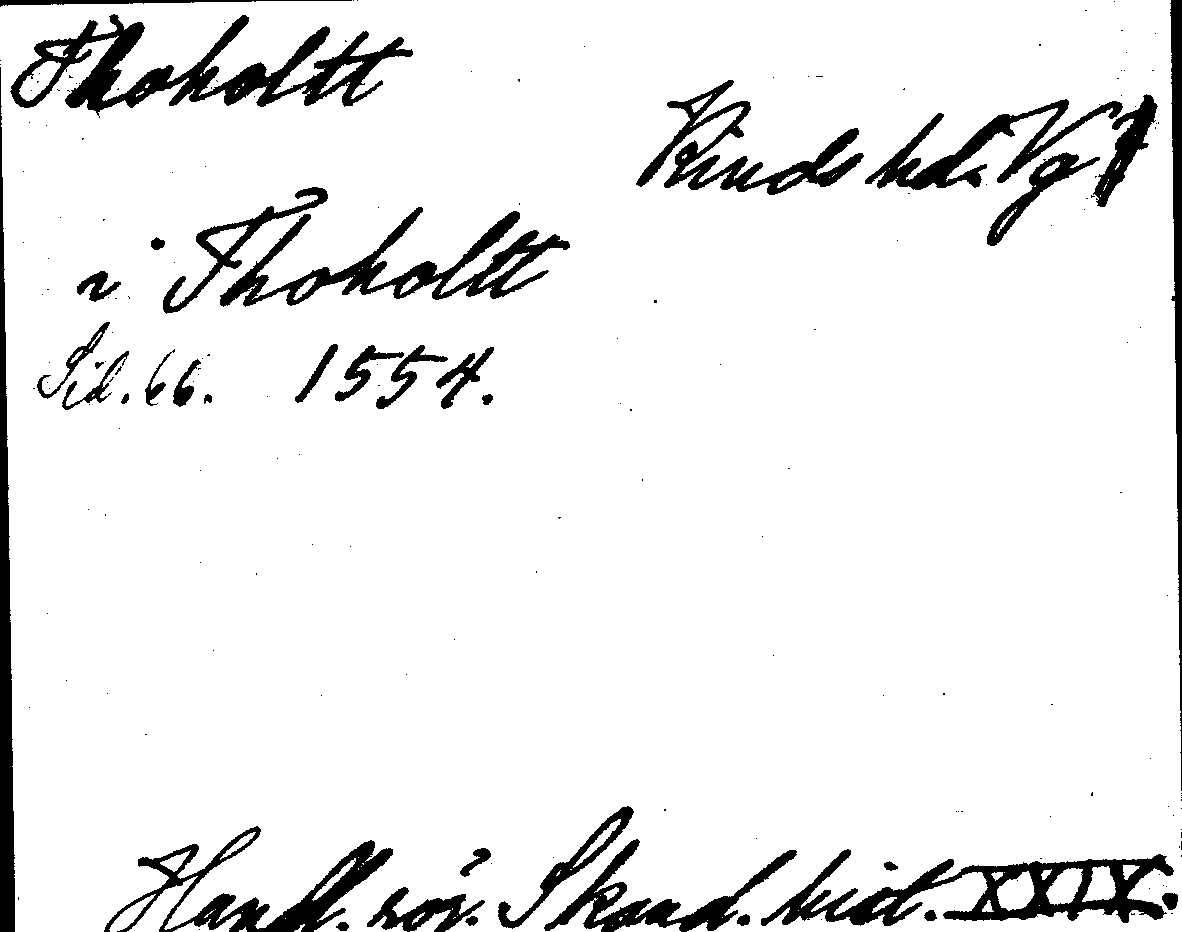 Thoholtt
Kinds hd. Vg
i Thoholtt
Sid. 66. 1554.
Handl. rör. Skand. hist. XXIX.